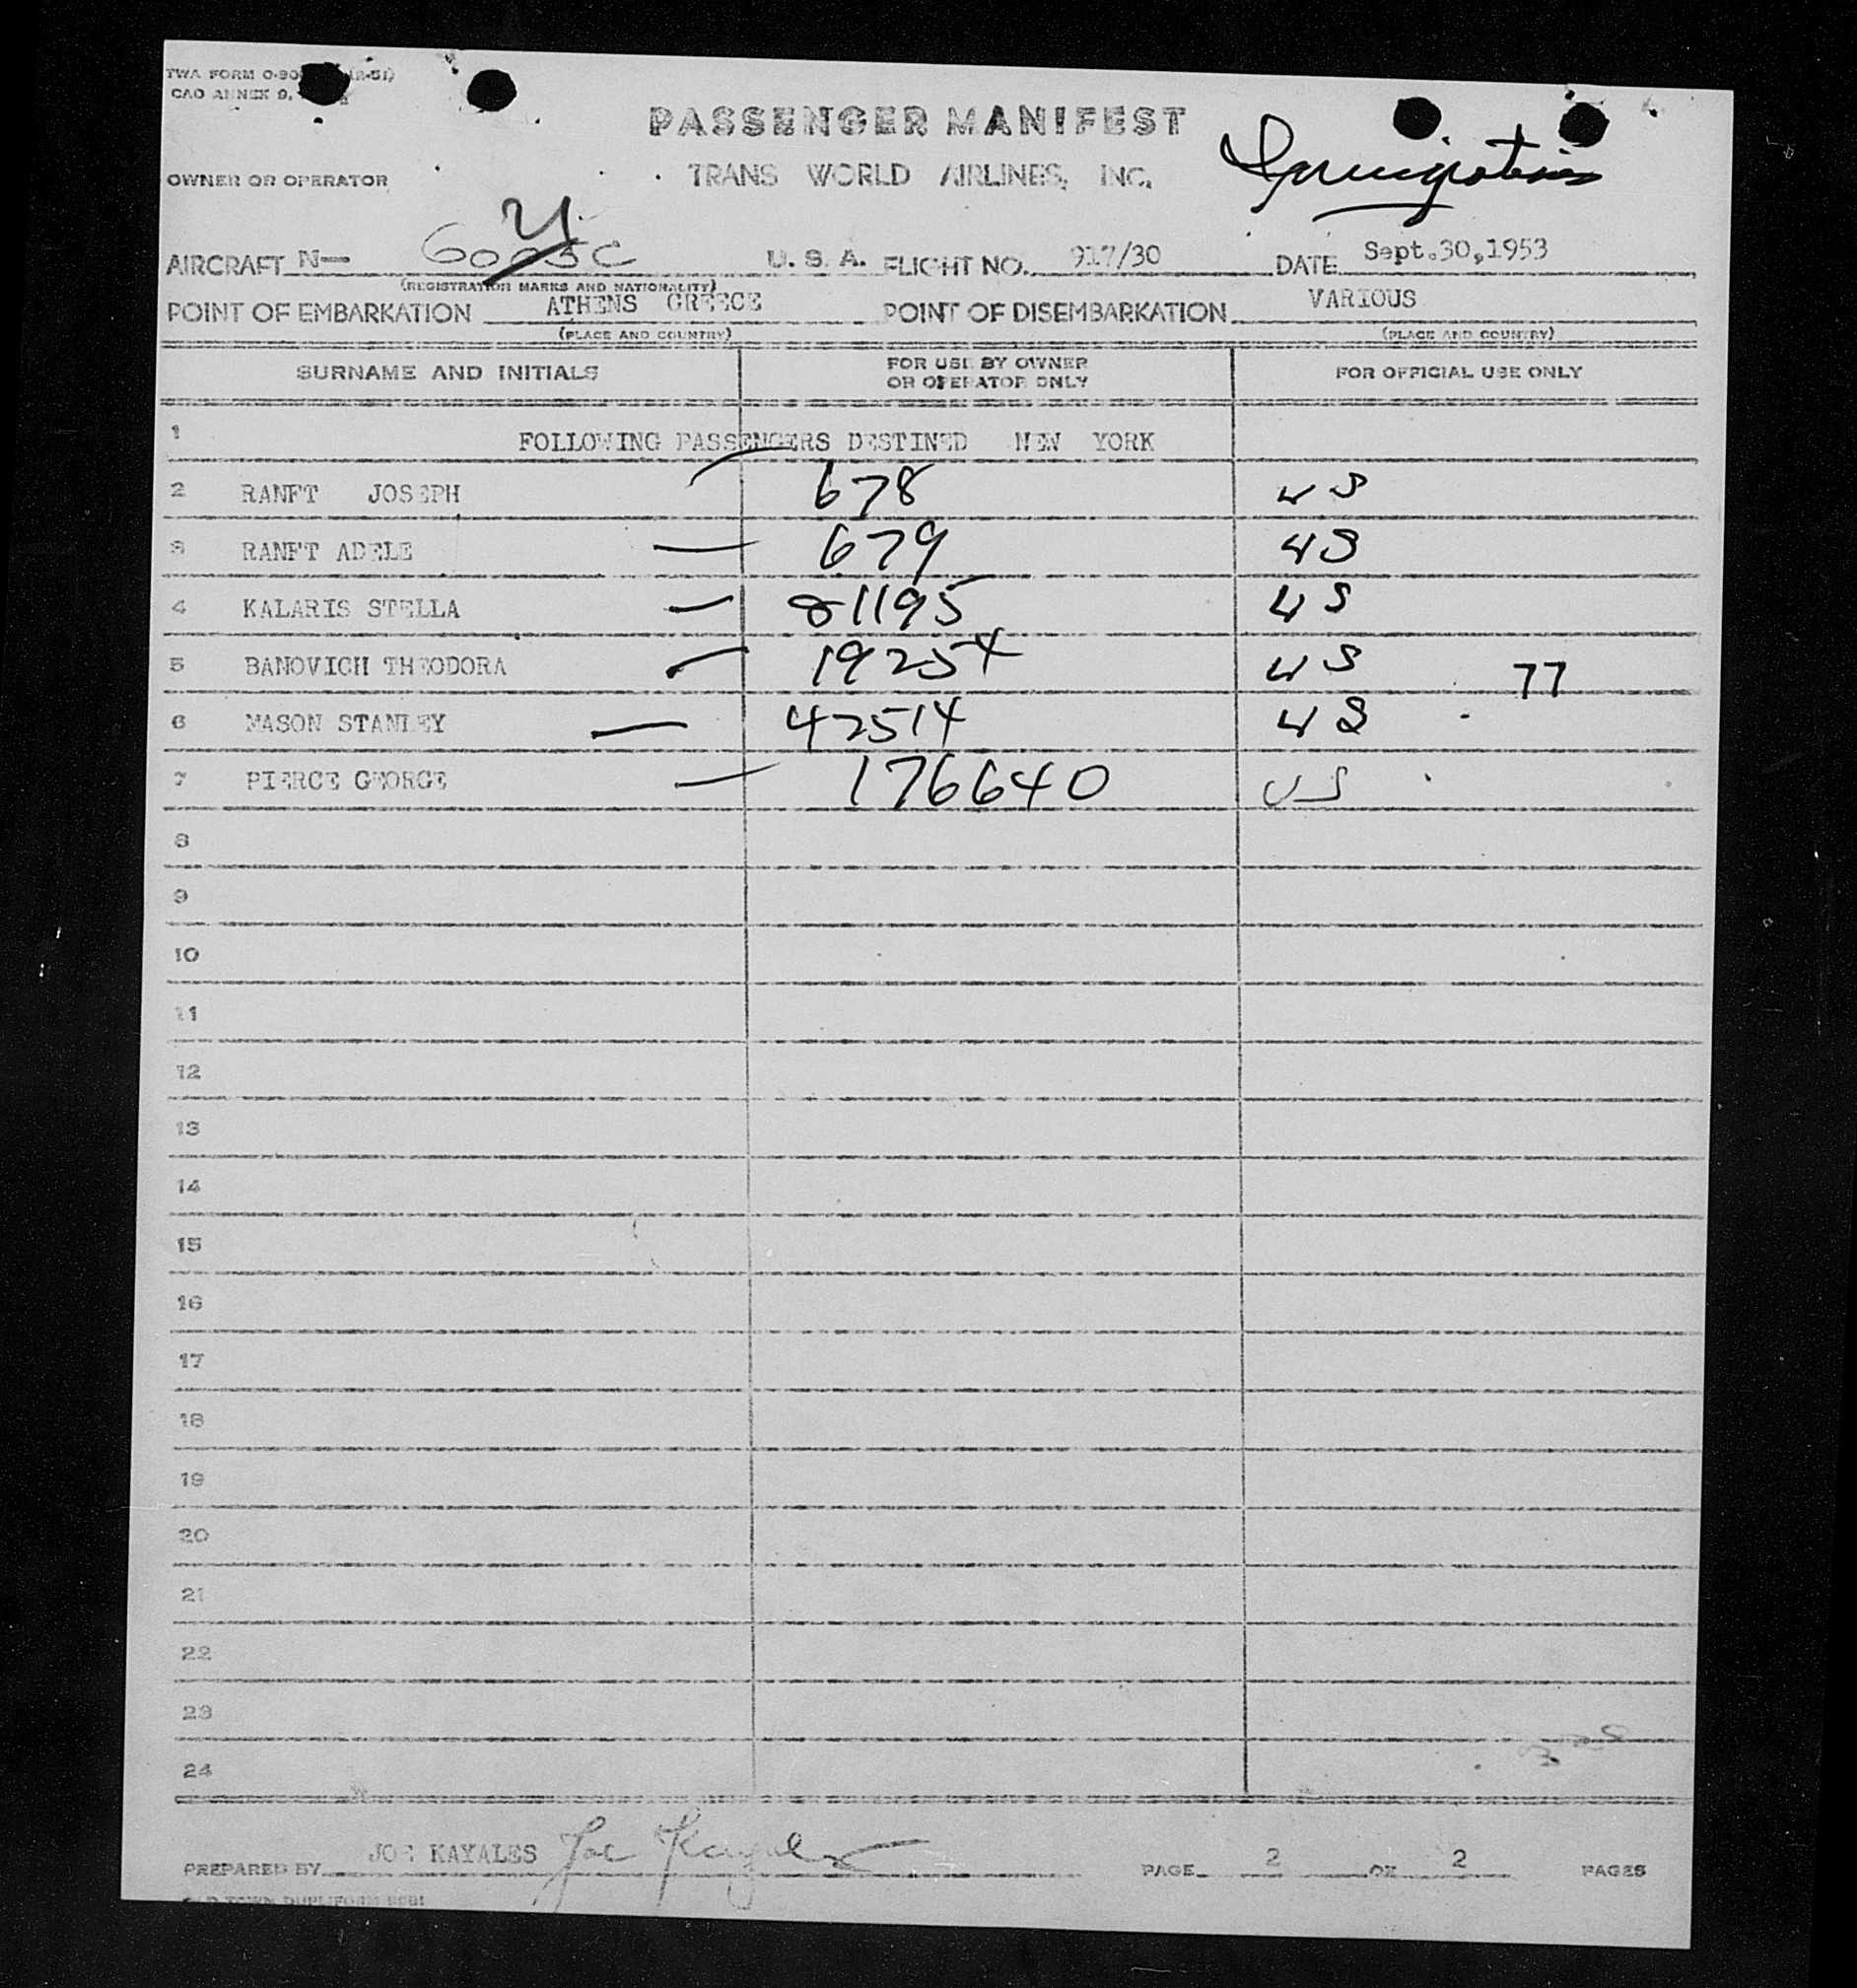 TWA FORM O-90 (2-51)
CAO ANNEX 9,
PASSENGER MANIFEST
Immigration
OWNER OR OPERATOR TRANS WORLD AIRLINES, INC.
AIRCRAFT N— 6005C U. S. A. FLIGHT NO. 917/30 DATE Sept.30,1953
(REGISTRATION MARKS AND NATIONALITY)
POINT OF EMBARKATION ATHENS GREECE POINT OF DISEMBARKATION VARIOUS
(PLACE AND COUNTRY) (PLACE AND COUNTRY)
SURNAME AND INITIALS FOR USE BY OWNER OR OPERATOR ONLY FOR OFFICIAL USE ONLY
1 FOLLOWING PASSENGERS DESTINED NEW YORK
2 RANFT JOSEPH — 678 US
3 RANFT ADELE — 679 US
4 KALARIS STELLA — 81195 US
5 BANOVICH THEODORA — 19254 US 77
6 MASON STANLEY — 42514 US
7 PIERCE GEORGE — 176640 US
8
9
10
11
12
13
14
15
16
17
18
19
20
21
22
23
24
PREPARED BY JOE KAYALES Joe Kayales PAGE 2 OF 2 PAGES